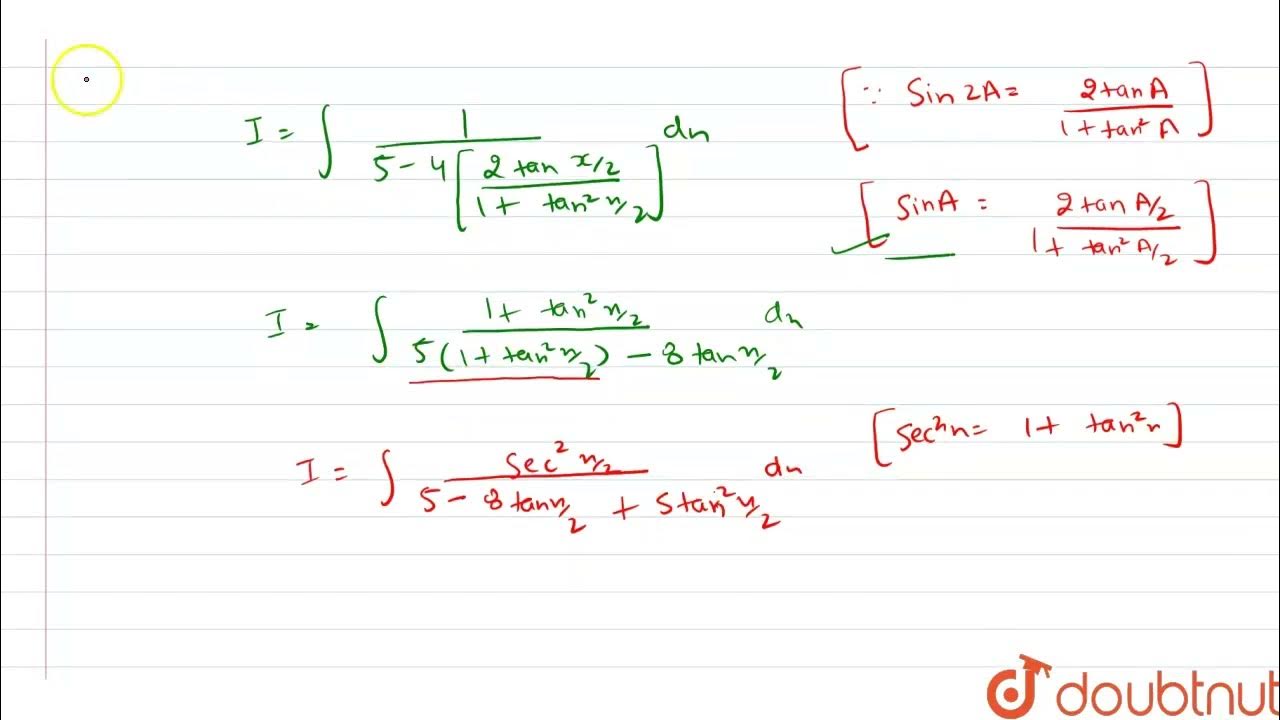 I = ∫ 1 / (5 - 4 [2 tan x/2 / (1 + tan² x/2)]) dx
[∵ Sin 2A = 2 tan A / (1 + tan² A)]
[Sin A = 2 tan A/2 / (1 + tan² A/2)]
I = ∫ (1 + tan² x/2) / (5 (1 + tan² x/2) - 8 tan x/2) dx
[Sec² x = 1 + tan² x]
I = ∫ Sec² x/2 / (5 - 8 tan x/2 + 5 tan² x/2) dx
doubtnut